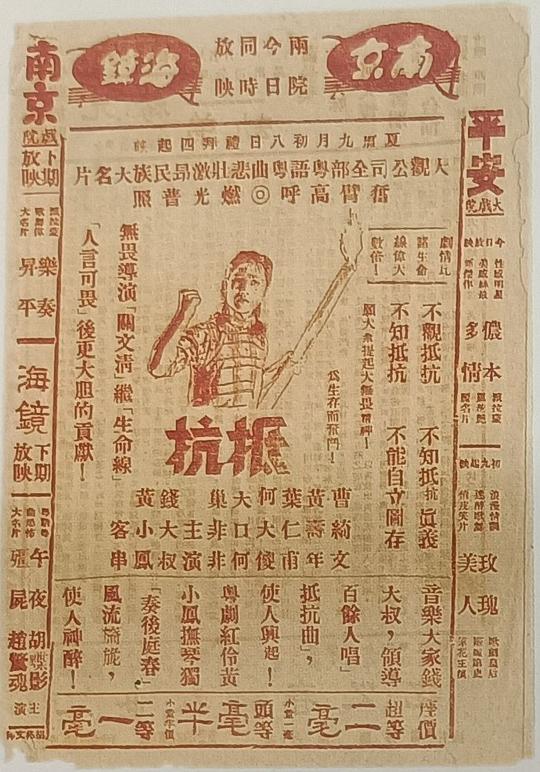 南京
海鏡
兩院
今日
同時
放映
夏曆九月初八日禮拜四起映
大觀公司全部粵語粵曲悲壯激昂民族大名片
奮臂高呼◎燃光普照
劇情比
諸生命
線偉大
數倍！
不觀抵抗 不知抵抗真義
不知抵抗 不能自立圖存
願大衆提起大無畏精神！
為生存而奮鬥！
無畏導演「關文清」繼「生命線」
「人言可畏」後更大胆的貢獻！
抵抗
曹綺文
黃壽年
葉仁甫
何大傻
大口何
巢非非
主演
錢大叔
黃小鳳
客串
音樂大家錢
大叔，領導
百餘人唱」
抵抗曲」，
使人興起！
粵劇紅伶黃
小鳳撫琴獨
「奏後庭春」
風流旖旎，
使人神醉！
座價
超等
二毫
小童一毫
頭等
毫半
小童半價
二等
一毫
平安
大戲院
今日放映
儂本多情
初九起映
玫瑰美人
南京
戲院
下期放映
樂奏昇平
海鏡
下期放映
午夜殭屍
胡蝶影
趙驚魂
主演